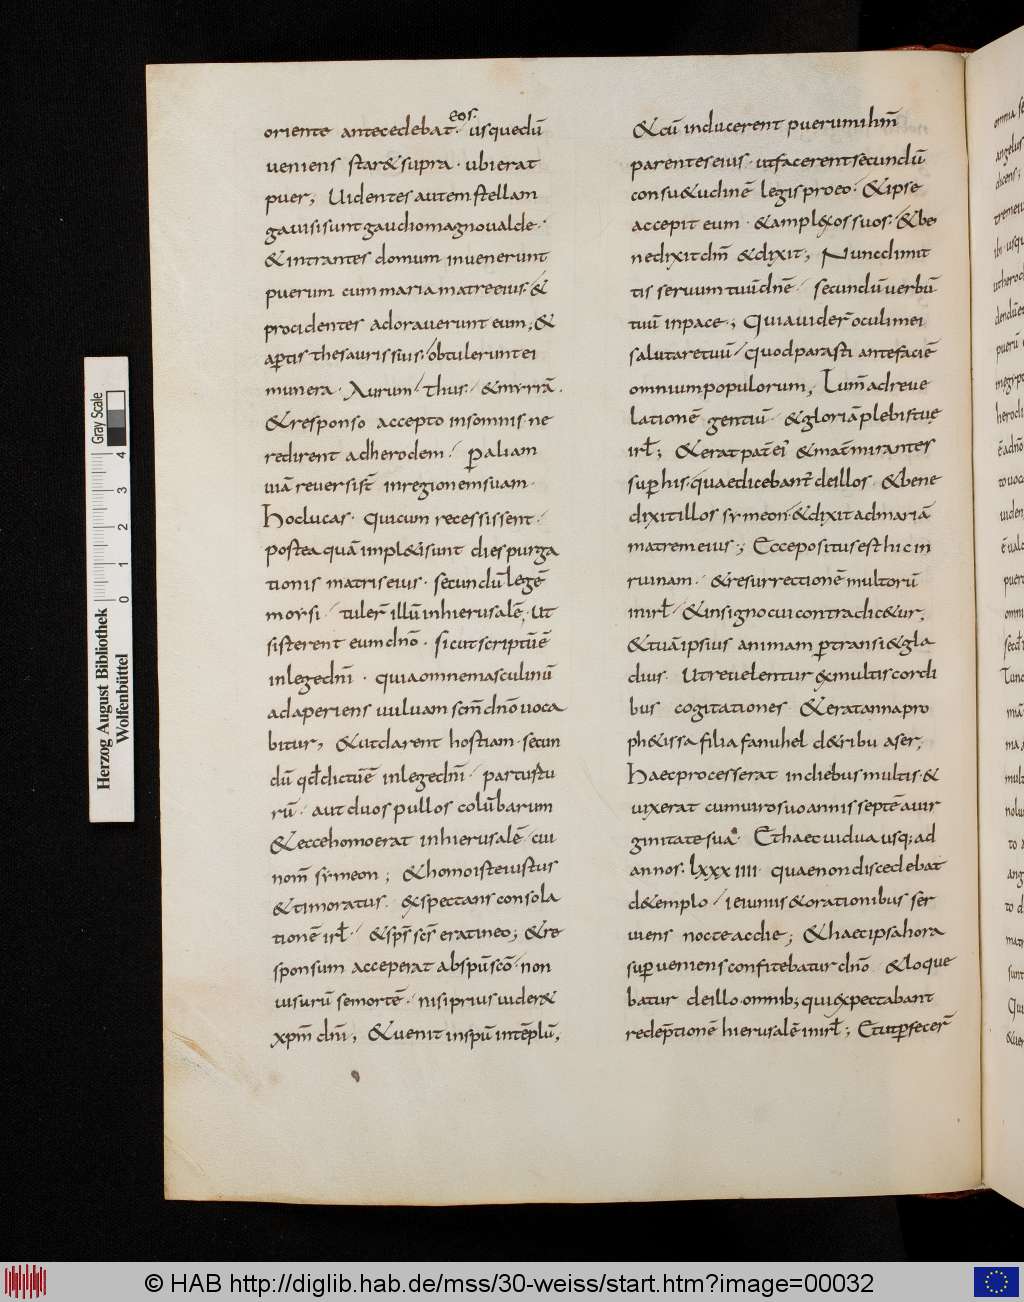 oriente antecedebat eos. usquedū
ueniens star& supra · ubierat
puer, Uidentes autem stellam
gauisisunt gaudiomagnoualde·
& intrantes domum inuenerunt
puerum cum maria matreeius·/ &
procidentes adorauerunt eum; &
aꝑtis thesaurissuis·/ obtulerunt ei
munera · Aurum·/ thus·/ & myrrā ·
& responso accepto insomnis · ne
redirent adherodem·/ Ꝑaliam
uiā reuersisт̄ inregionemsuam·
Hoclucas · Quicum recessissent·
postea quā impl&isunt diespurga
tionis matriseius · secundūlegē
morsi·/ tuler̄ illū inhierusalē, Ut
sisterent eumdn̄o · sicutscriptūē
inlegedn̄i · quiaomnemasculinū
adaperiens uuluam scm̄ dn̄ouoca
bitur, & utdarent hostiam · secun
dū qđ dictūē inlegedn̄i· parturtu
rū· aut duos pullos colūbarum
& eccehomoerat inhierusalē· cui
nom̄ symeon; & homoisteiustus
& timoratus· &xspectans consola
tionē irł·/ & sp̄s sc̄s eratineo; & re
sponsum acceperat abspūscō· non
uisurū semortē· nisipriusuider&
xp̄m dn̄i, & uenit inspū intēplū,
& cū inducerent puerumihm̄
parenteseius · utfacerentsecundū
consu&udinē legis proeo·/ & ipse
accepit eum · & ampl&ossuos·/ & be
nedixitdm̄ & dixit; Nuncdimit
tis seruum tuūdn̄e· secundūuerbū
tuū inpace·, Quiauider̄oculimei
salutaretuū·/ Quodparasti antefaciē
omniumpopulorum, Lum̄adreue
lationē gentiū· & gloriāplebistuę
irł; & erat pat̄ ei' & mat̄ mirantes
suꝑhis · quaedicebant̄ deillos · & bene
dixitillos symeon · & dixit admariā
matremeius·; Ecce positus est hic in
ruinam· & resurrectionē multorū
inirł·/ & insigno cui contradic&ur,
& tuāipsius animam ꝑtransi& gla
dius· Utreuelentur &xmultiscordi
bus cogitationes & eratannapro
ph&issa filia fanuhel d&ribu aser,
Haecprocesserat indiebusmultis · &
uixerat cumuirosuoannisseptēauir
ginitate sua· Ethaecuidua usq; ad
annos· lxxx IIII· quaenondiscedebat
d&emplo·/ ieiuniis & orationibus ser
uiens nocteacdie; & haecipsahora
suꝑueniensconfitebaturdn̄o & loque
batur deillo·omnib; qui&xpectabant
redēptionē hierusalē inirł; Etutꝑfecer̄
Herzog August Bibliothek
Wolfenbüttel
0 1 2 3 4
Gray Scale
© HAB http://diglib.hab.de/mss/30-weiss/start.htm?image=00032